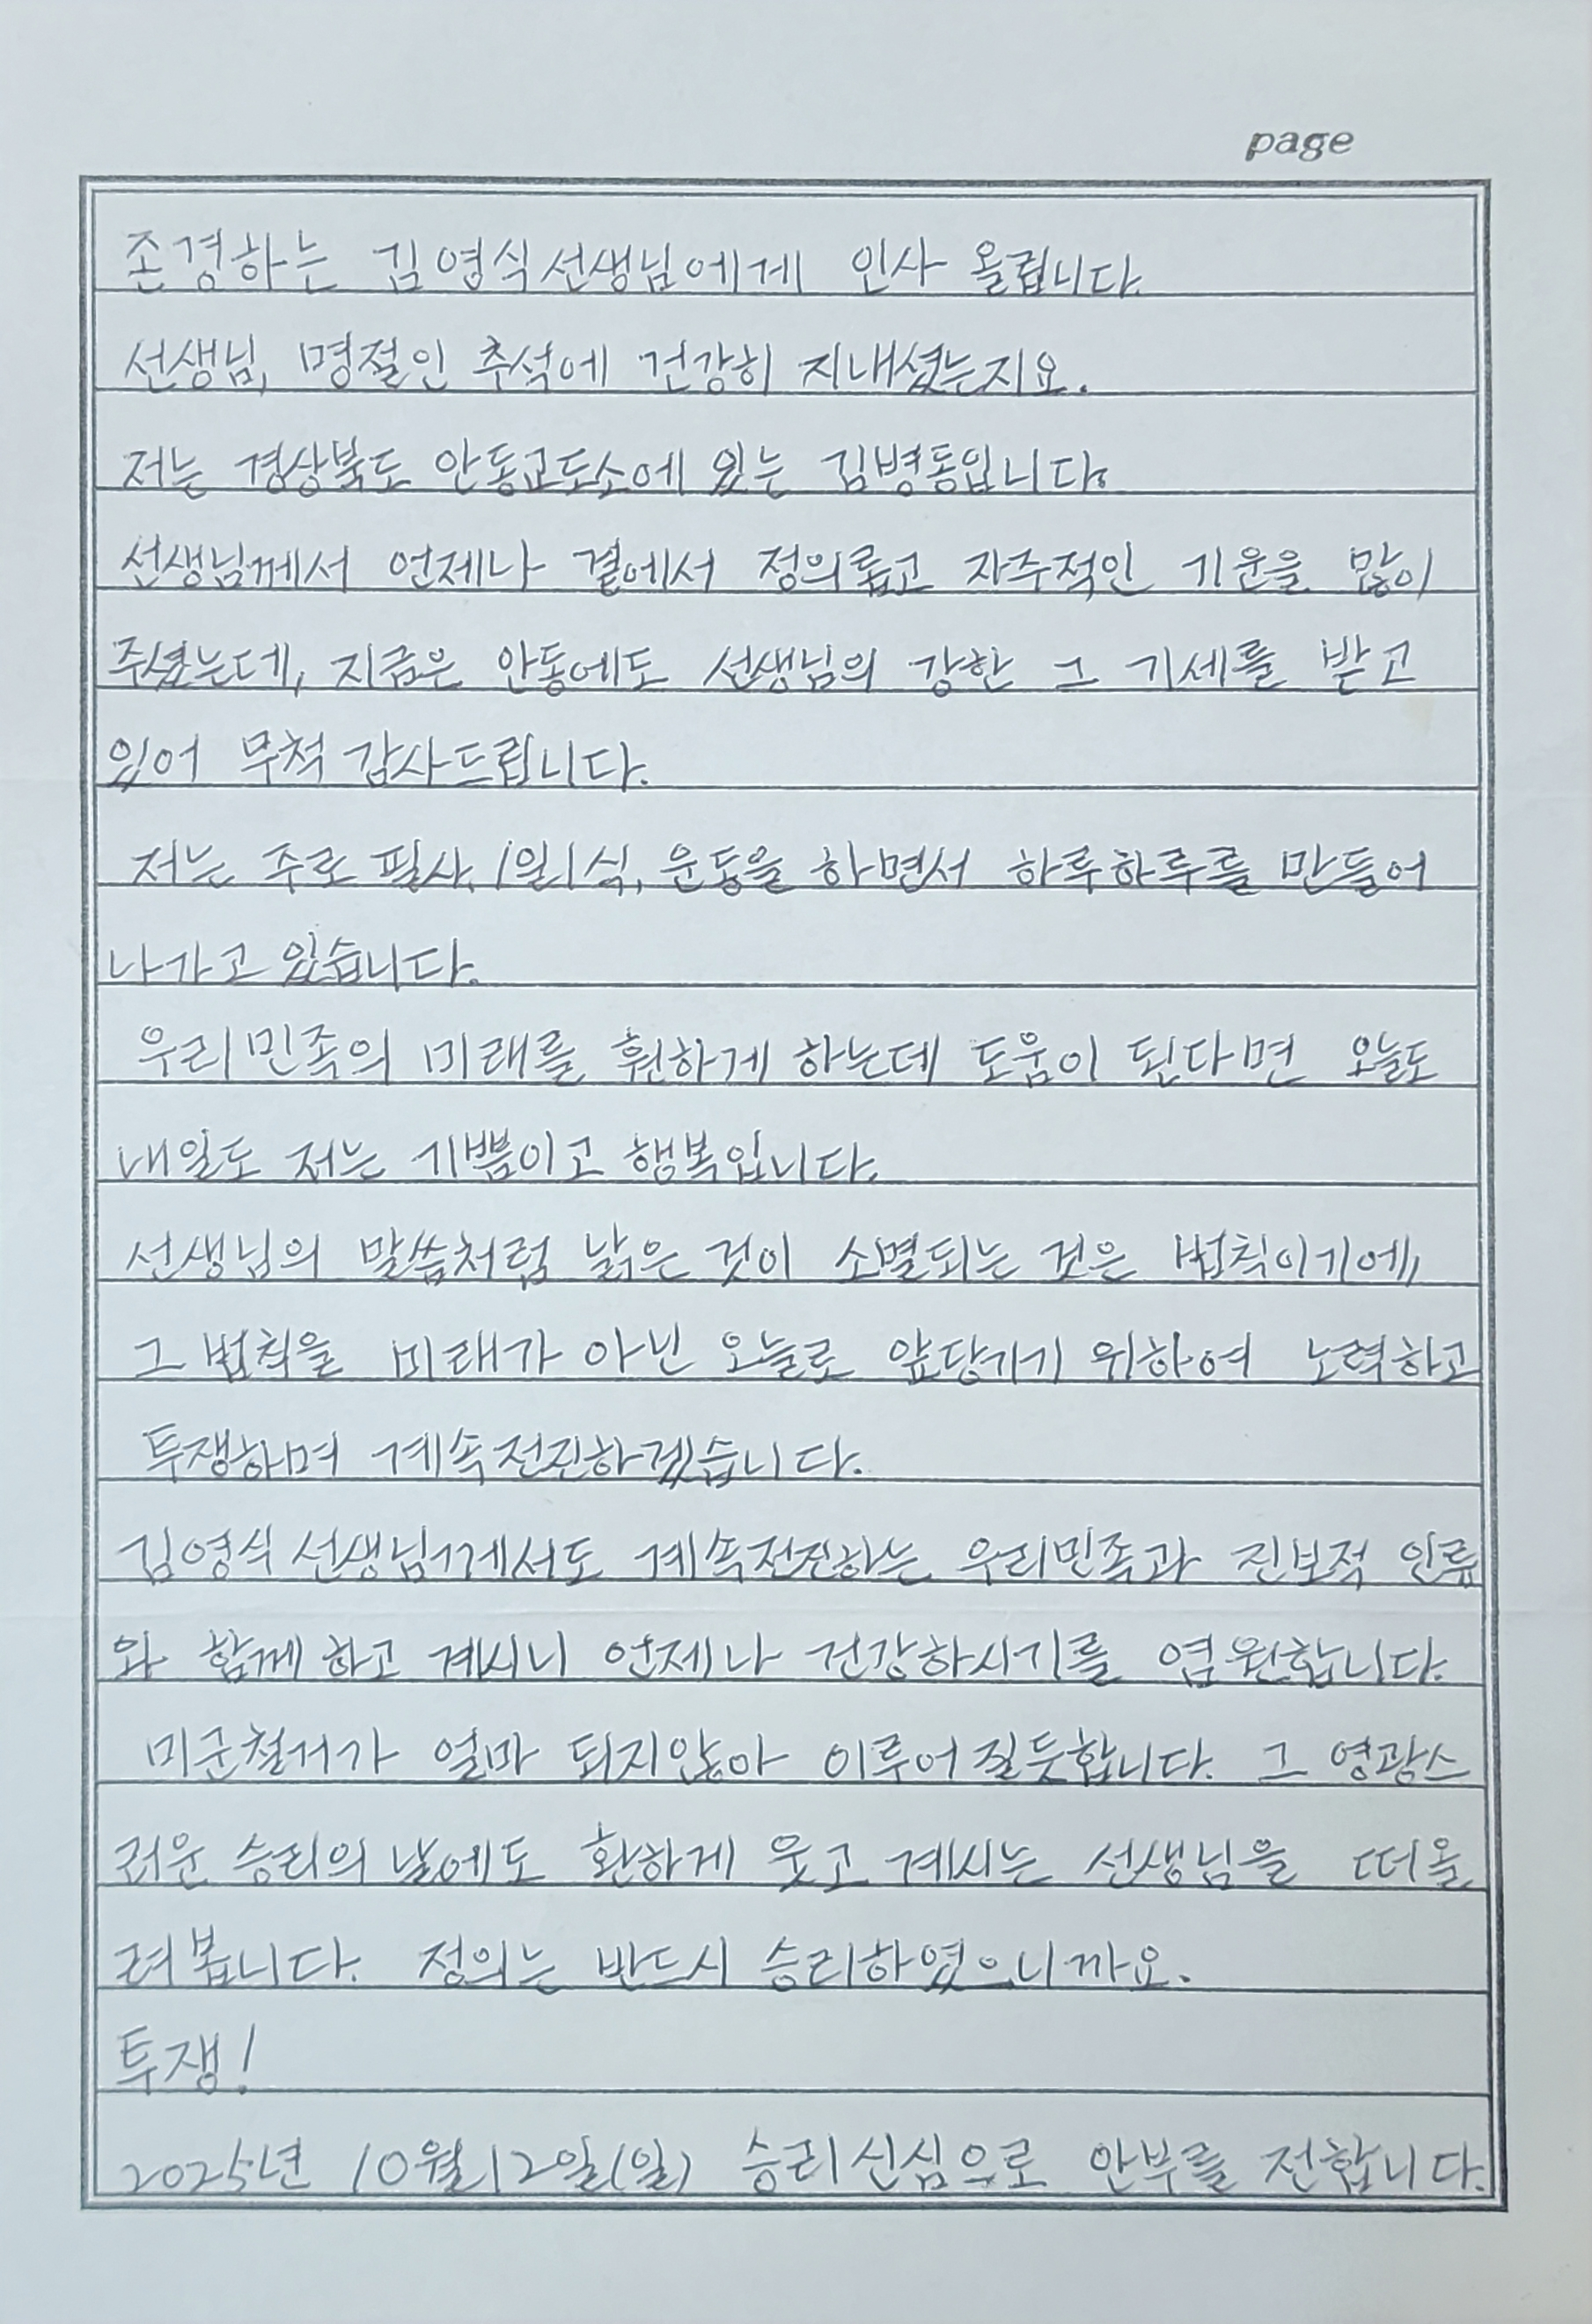 page
존경하는 김영식선생님에게 인사 올립니다.
선생님, 명절인 추석에 건강히 지내셨는지요.
저는 경상북도 안동교도소에 있는 김병동입니다.
선생님께서 언제나 곁에서 정의롭고 자주적인 기운을 많이
주셨는데, 지금은 안동에도 선생님의 강한 그 기세를 받고
있어 무척 감사드립니다.
저는 주로 필사, 1일1식, 운동을 하면서 하루하루를 만들어
나가고 있습니다.
우리민족의 미래를 훤하게 하는데 도움이 된다면 오늘도
내일도 저는 기쁨이고 행복입니다.
선생님의 말씀처럼 낡은 것이 소멸되는 것은 법칙이기에,
그 법칙을 미래가 아닌 오늘로 앞당기기 위하여 노력하고
투쟁하며 계속전진하겠습니다.
김영식 선생님께서도 계속전진하는 우리민족과 진보적 인류
와 함께 하고 계시니 언제나 건강하시기를 염원합니다.
미군철거가 얼마 되지않아 이루어질듯합니다. 그 영광스
러운 승리의 날에도 환하게 웃고 계시는 선생님을 떠올
려봅니다. 정의는 반드시 승리하였으니까요.
투쟁!
2025년 10월12일(일) 승리신심으로 안부를 전합니다.